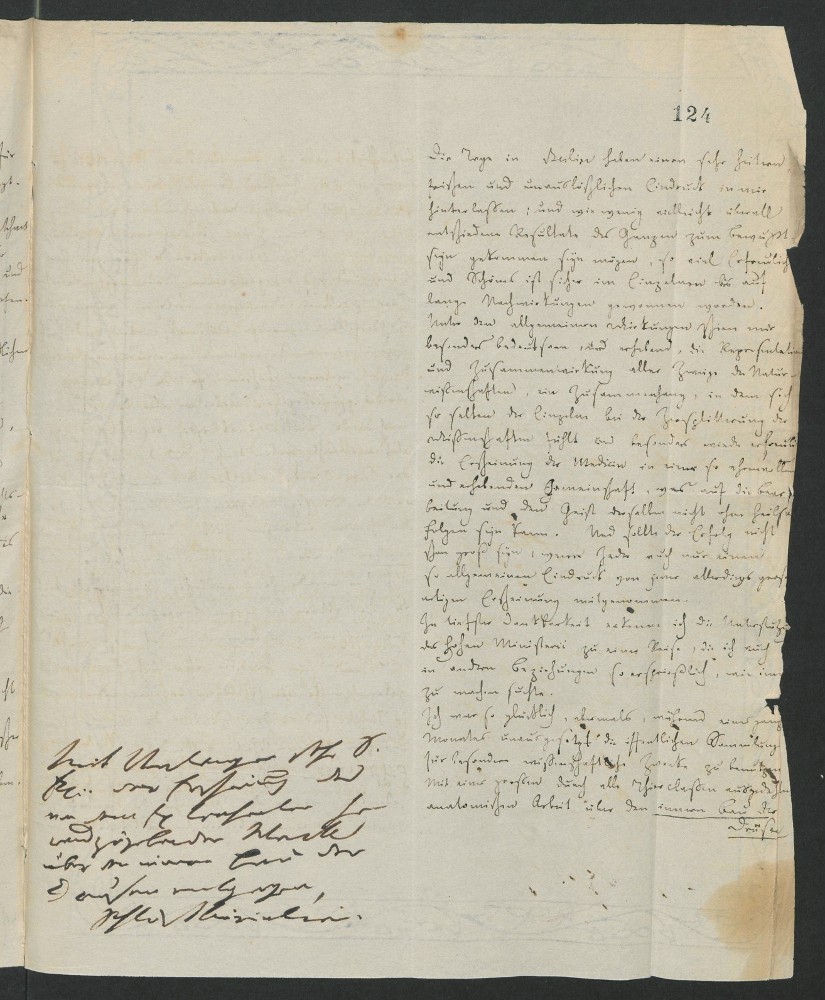 124
Die Tage in Berlin haben einen sehr heitren
frischen und unauslöschlichen Eindruck in mir
hinterlassen; und wie wenig vielleicht überall
entschiedene Resultate des Ganzen zum bewußt
seyn gekommen seyn mögen, so viel Erfreulich
und Schönes ist sicher im Einzelnen auf
lange Nachwirkungen gewonnen worden.
Unter den allgemeinen Wirkungen schien mir
besonders bedeutsam und erhebend, die Repräsentation
und Zusammenwirkung aller Zweige der Natur-
wissenschaften, ein Zusammenhang, in dem sich
so selten der Einzelne bei der Zersplitterung der
Wissenschaften fühlt und besonders wieder erfreulich
die Erscheinung der Medicin in einer so
und erhebenden Gemeinschaft, was auf die Bear-
beitung und den Geist derselben nicht ohne heilsa
Folgen seyn kann. Und sollte der Erfolg nicht
schon groß seyn, wenn Jeder auch nur einen
so allgemeinen Eindruck von jener allerdings gross
artigen Erscheinung mitgenommen.
In tiefster Dankbarkeit erkenne ich die Unterstützung
des Hohen Ministerii zu einer Reise, die ich auch
in andren Beziehungen so ersprießlich, wie im
zu machen suchte.
Ich war so glücklich, abermals, während eines ganz
Monates unausgesetzt die öffentlichen Sammlungen
für besondere wissenschaftliche Zwecke zu benutzen
Mit einer großen durch alle Thierclassen ausgedehn
anatomischen Arbeit über den innern Bau der
Drüsen
Mit Verlangen
der Erscheinung des
über den inneren Bau der
Drüsen entgegen,